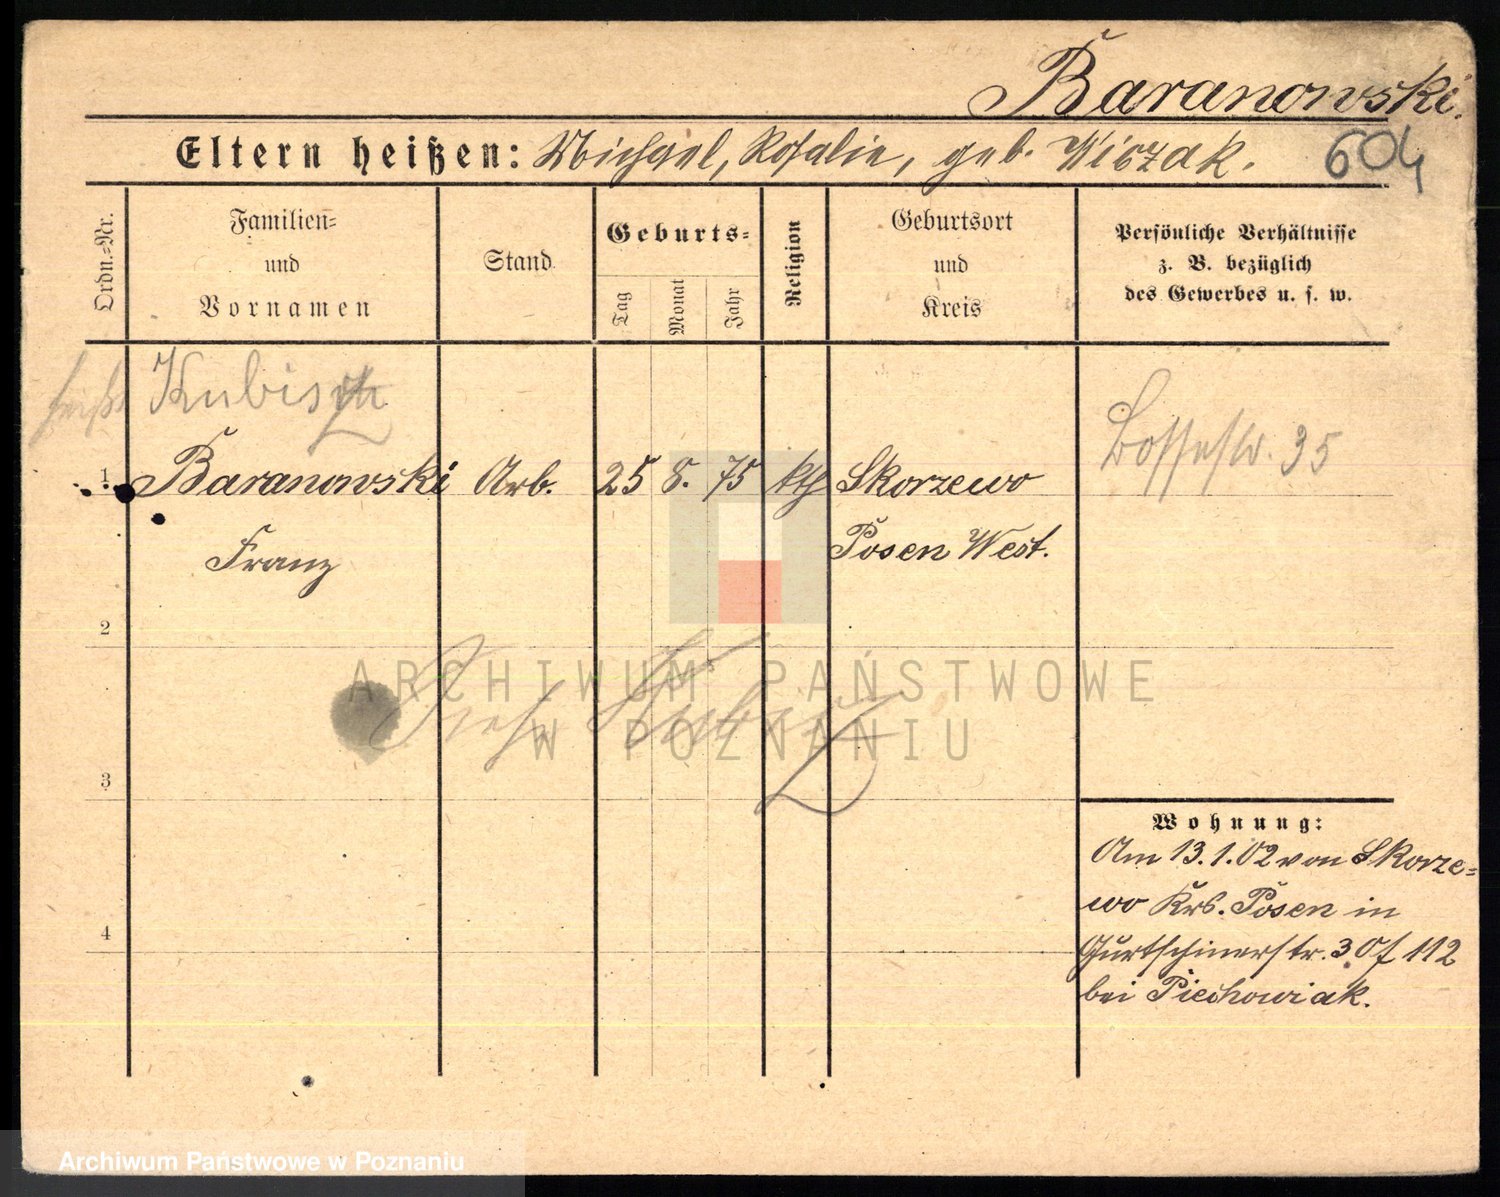 Baranowski.
Eltern heißen: Michael, Rosalie, geb. Wiszak.
604
Ordn.-Nr.
Familien-
und
Vornamen
Stand
Geburts-
Tag
Monat
Jahr
Religion
Geburtsort
und
Kreis
Persönliche Verhältnisse
z. B. bezüglich
des Gewerbes u. s. w.
heißt Kubis
1 Baranowski Arb. 25 8. 75 kth Skorzewo
Franz Posen West.
Bossestr. 35
2
Siehe Kubis
3
4
Wohnung:
Am 13.1.02 von Skorze-
wo Krs. Posen in
Gurtschinerstr. 30f 112
bei Piechowiak.
ARCHIWUM PAŃSTWOWE
W POZNANIU
Archiwum Państwowe w Poznaniu